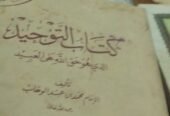 كتاب التوحيد
الذي هو حق الله على العبيد
تأليف
الإمام محمد بن عبد الوهاب